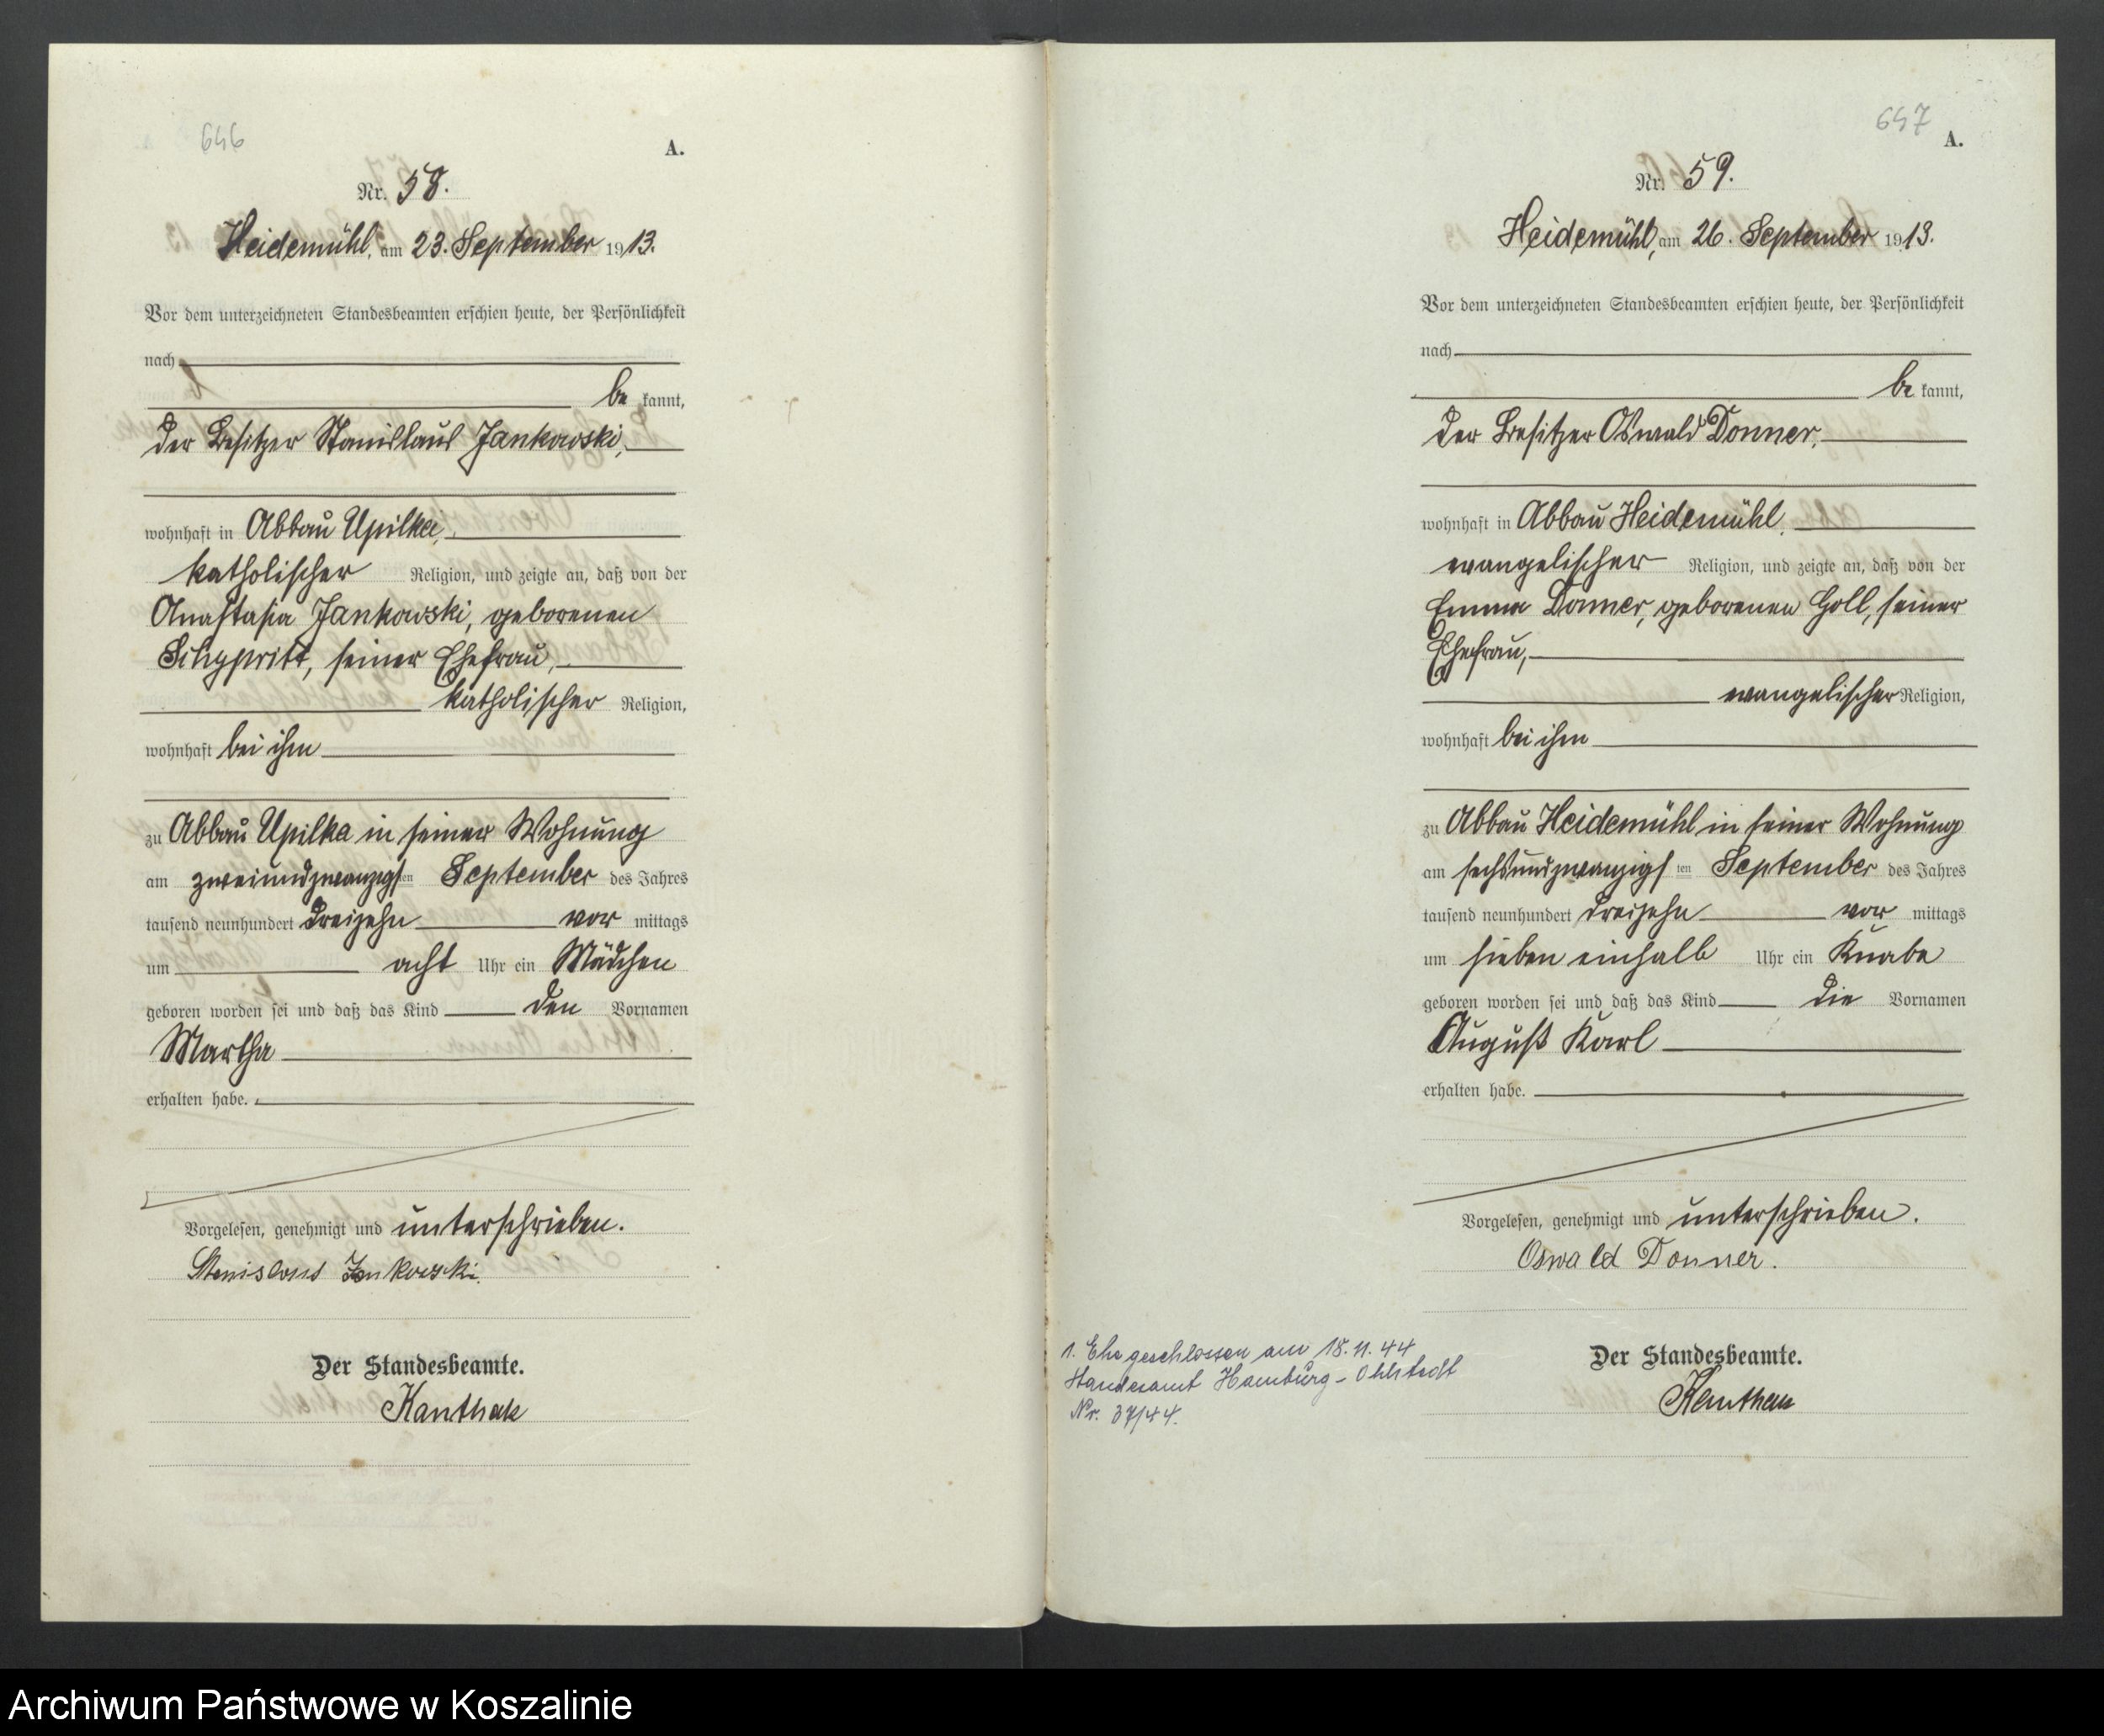 646
A.
Nr. 58.
Heidemühl, am 23. September 1913.
Vor dem unterzeichneten Standesbeamten erschien heute, der Persönlichkeit
nach
be kannt,
der Besitzer Stanislaus Jankowski,
wohnhaft in Abbau Upilka,
katholischer Religion, und zeigte an, daß von der
Anastasia Jankowski, geborenen
seiner Ehefrau,
katholischer Religion,
wohnhaft bei ihm
zu Abbau Upilka in seiner Wohnung
am zweiundzwanzigsten September des Jahres
tausend neunhundert dreizehn vor mittags
um acht Uhr ein Mädchen
geboren worden sei und daß das Kind den Vornamen
Martha
erhalten habe.
Vorgelesen, genehmigt und unterschrieben.
Stanislaus Jankowski.
Der Standesbeamte.
Kanthak
647
A.
Nr. 59.
Heidemühl, am 26. September 1913.
Vor dem unterzeichneten Standesbeamten erschien heute, der Persönlichkeit
nach
be kannt,
der Besitzer Oswald Donner,
wohnhaft in Abbau Heidemühl,
evangelischer Religion, und zeigte an, daß von der
Emma Donner, geborenen Goll, seiner
Ehefrau,
evangelischer Religion,
wohnhaft bei ihm
zu Abbau Heidemühl in seiner Wohnung
am sechsundzwanzigsten September des Jahres
tausend neunhundert dreizehn vor mittags
um sieben einhalb Uhr ein Knabe
geboren worden sei und daß das Kind die Vornamen
August Karl
erhalten habe.
Vorgelesen, genehmigt und unterschrieben.
Oswald Donner.
1. Ehe geschlossen am 18.11.44
Standesamt Hamburg-Ohlstedt
Nr. 37/44.
Der Standesbeamte.
Kanthak
Archiwum Państwowe w Koszalinie